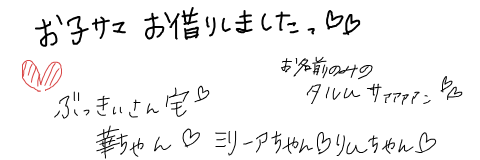 お子サマ お借りしましたっ♡♡
お名前のみの
タルルサァァァァン♡♡
ぶっきぃさん宅♡
華ちゃん♡ ミリーアちゃん♡りんちゃん♡